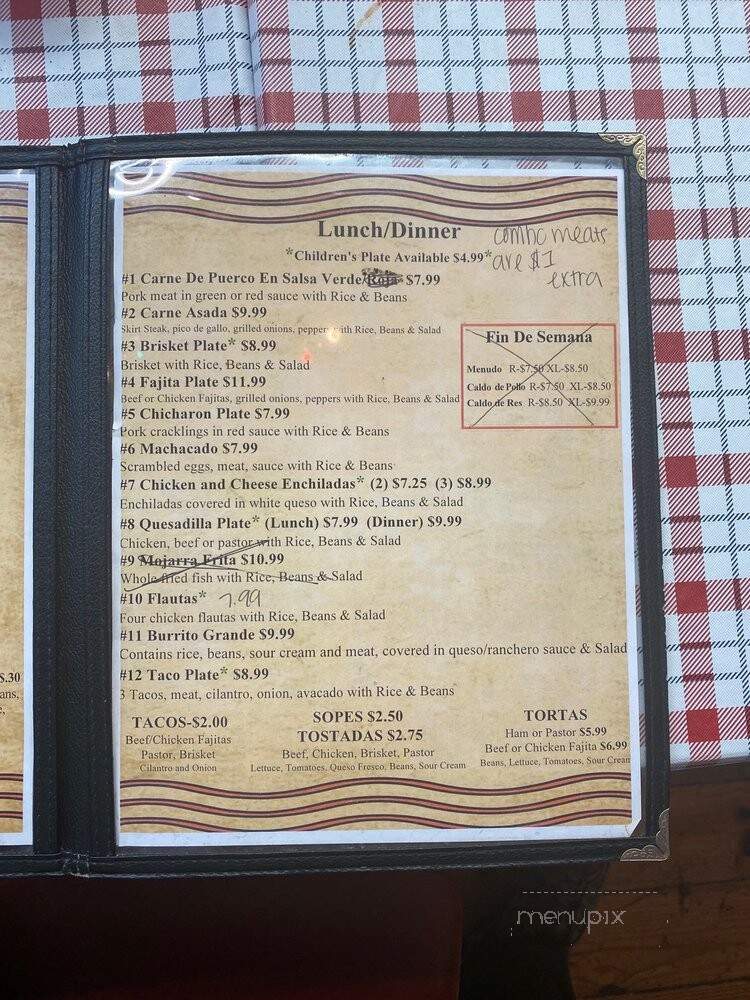 Lunch/Dinner
combo meats
are $1
extra
*Children's Plate Available $4.99*
#1 Carne De Puerco En Salsa Verde/Roja $7.99
Pork meat in green or red sauce with Rice & Beans
#2 Carne Asada $9.99
Skirt Steak, pico de gallo, grilled onions, peppers with Rice, Beans & Salad
#3 Brisket Plate* $8.99
Brisket with Rice, Beans & Salad
#4 Fajita Plate $11.99
Beef or Chicken Fajitas, grilled onions, peppers with Rice, Beans & Salad
#5 Chicharon Plate $7.99
Pork cracklings in red sauce with Rice & Beans
#6 Machacado $7.99
Scrambled eggs, meat, sauce with Rice & Beans
#7 Chicken and Cheese Enchiladas* (2) $7.25 (3) $8.99
Enchiladas covered in white queso with Rice, Beans & Salad
#8 Quesadilla Plate* (Lunch) $7.99 (Dinner) $9.99
Chicken, beef or pastor with Rice, Beans & Salad
#9 Mojarra Frita $10.99
Whole fried fish with Rice, Beans & Salad
#10 Flautas* 7.99
Four chicken flautas with Rice, Beans & Salad
#11 Burrito Grande $9.99
Contains rice, beans, sour cream and meat, covered in queso/ranchero sauce & Salad
#12 Taco Plate* $8.99
3 Tacos, meat, cilantro, onion, avacado with Rice & Beans
Fin De Semana
Menudo R-$7.50 XL-$8.50
Caldo de Pollo R-$7.50 XL-$8.50
Caldo de Res R-$8.50 XL-$9.99
TACOS-$2.00
Beef/Chicken Fajitas
Pastor, Brisket
Cilantro and Onion
SOPES $2.50
TOSTADAS $2.75
Beef, Chicken, Brisket, Pastor
Lettuce, Tomatoes, Queso Fresco, Beans, Sour Cream
TORTAS
Ham or Pastor $5.99
Beef or Chicken Fajita $6.99
Beans, Lettuce, Tomatoes, Sour Cream
menupix